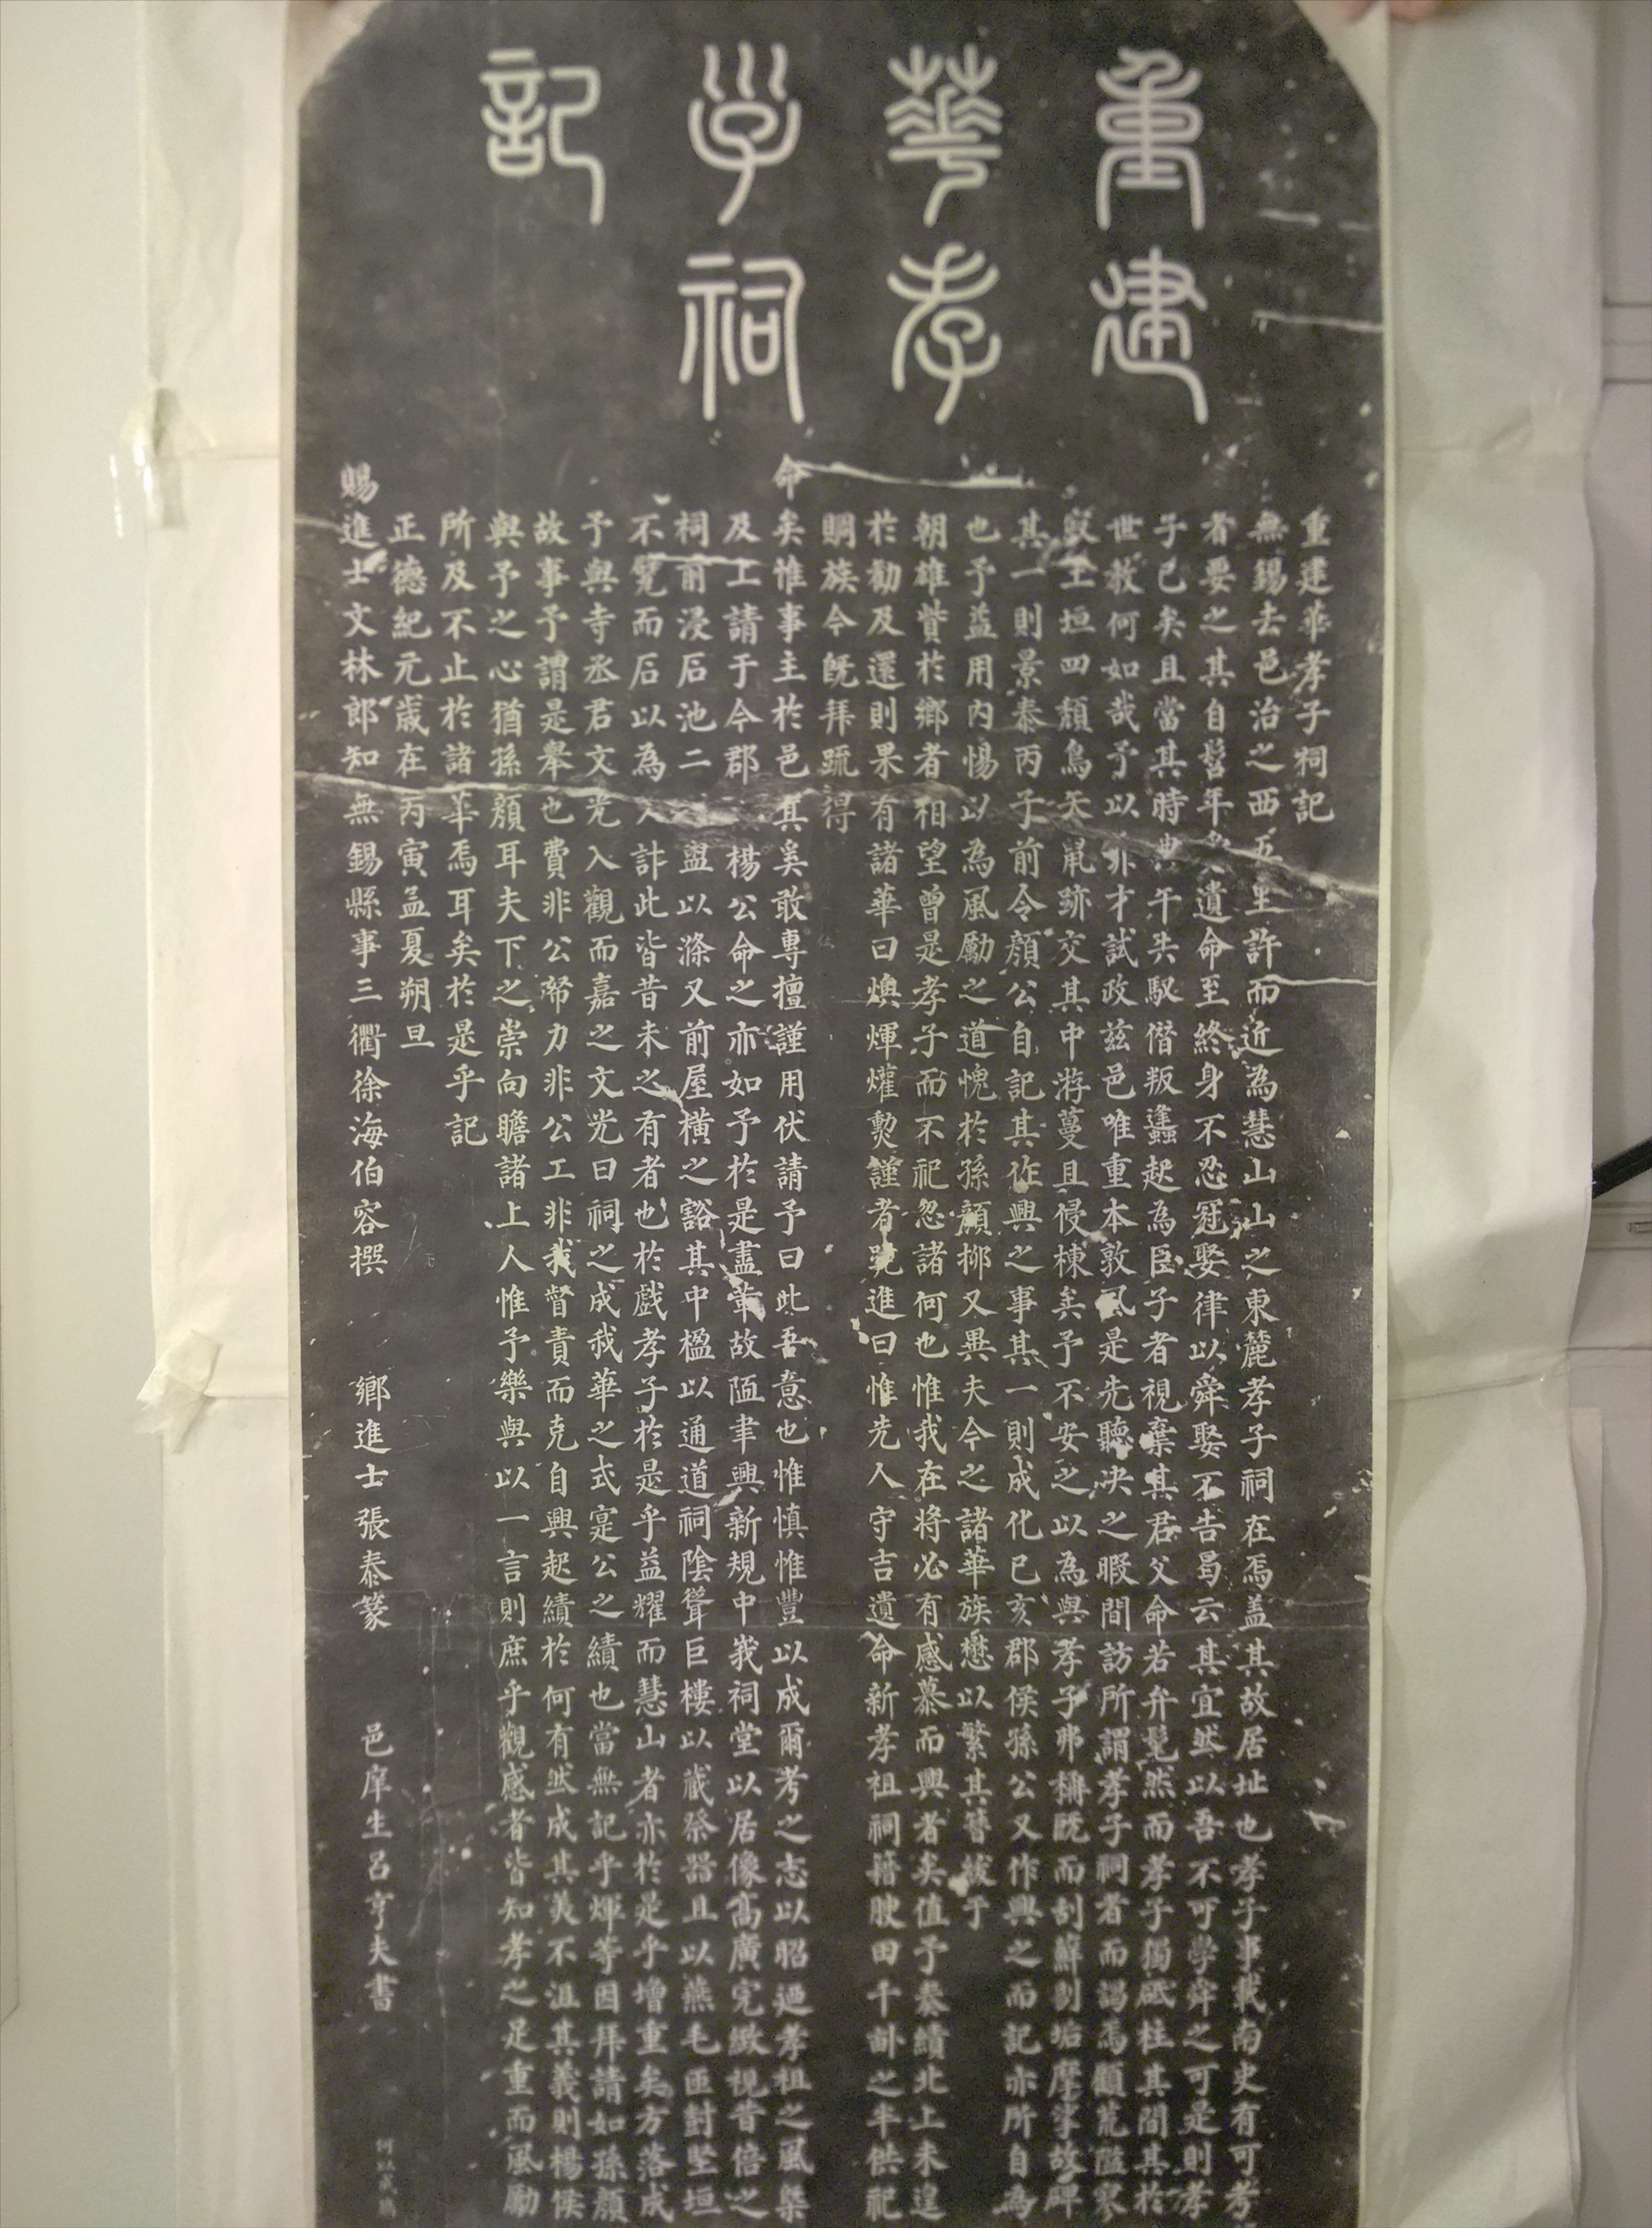 重建
華孝
子祠
記
重建華孝子祠記
無錫去邑治之西五里許而近為慧山山之東麓孝子祠在焉盖其故居址也孝子事載南史有可考
者要之其自髫年遺命至終身不忍冠娶律以舜娶不告曷云其宜然以吾不可學舜之可是則孝
子已矣且當其時典午失馭僭叛蠭起為臣子者視棄其君父命若弁髦然而孝子獨砥柱其間其於
世教何如哉予以非才試政茲邑唯重本敦風是先聽决之暇間訪所謂孝子祠者而謁焉顧荒隘寥
土垣四頹鳥矢鼠跡交其中游蔓且侵棟矣予不安之以為與孝子弗稱既而刮蘚剔垢摩挲故碑
其一則景泰丙子前令顏公自記其作興之事其一則成化己亥郡侯孫公又作興之而記亦所自為
也予益用內惕以為風勵之道愧於孫顏抑又異夫今之諸華族懋以繁其簪紱于
朝雄貲於鄉者相望曾是孝子而不祀忽諸何也惟我在將必有感慕而興者矣值予奏績北上未遑
於勸及還則果有諸華曰煥煇爟勲謹者跪進曰惟先人守吉遺命新孝祖祠籍腴田千畝之半供祀
賙族今旣拜䟽得
命矣惟事主於邑其奚敢專擅謹用伏請予曰此吾意也惟慎惟豐以成爾考之志以昭廼孝祖之風槩
及上請于今郡楊公命之亦如予於是盡革故陋聿興新規中峩祠堂以居像高廣完緻視昔倍之
祠前浸石池二盥以滌又前屋橫之豁其中楹以通道祠陰聳巨樓以藏祭器且以燕毛匝封堅垣
不甓而石以為久計此皆昔未之有者也於戲孝子於是乎益耀而慧山者亦於是乎增重矣方落成
予與寺丞君文光入觀而嘉之文光曰祠之成我華之式寔公之績也當無記乎煇等因拜請如孫顏
故事予謂是舉也費非公帑力非公工非我督責而克自興起績於何有然成其美不沮其義則楊侯
與予之心猶孫顏耳夫下之崇向瞻諸上人惟予樂與以一言則庶乎觀感者皆知孝之足重而風勵
所及不止於諸華焉耳矣於是乎記
正德紀元歲在丙寅孟夏朔旦
賜進士文林郎知無錫縣事三衢徐海伯容撰 鄉進士張泰篆 邑庠生呂亨夫書